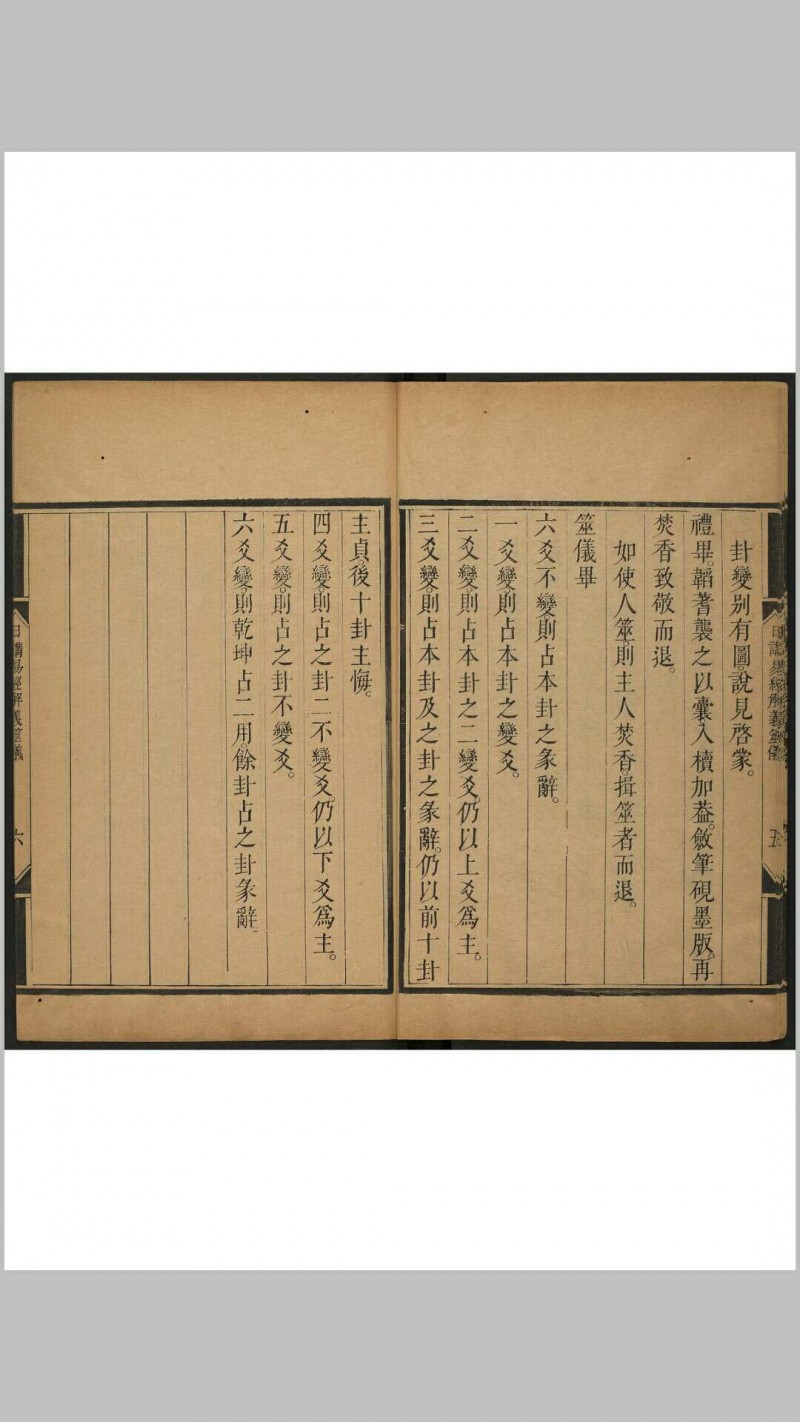 卦變别有圖。說見啓蒙。
禮畢。韜蓍襲之以囊入櫝加葢。斂筆硯墨版。再
焚香致敬而退。
如使人筮。則主人焚香。揖筮者而退。
筮儀畢
六爻不變則占本卦之彖辭。
一爻變則占本卦之變爻。
二爻變。則占本卦之二變爻。仍以上爻爲主。
三爻變。則占本卦及之卦之彖辭。仍以前十卦
日講易經解義筮儀
五
主貞。後十卦主悔。
四爻變。則占之卦二不變爻。仍以下爻爲主。
五爻變。則占之卦不變爻。
六爻變。則乾坤占二用。餘卦占之卦彖辭。
日講易經解義筮儀
六